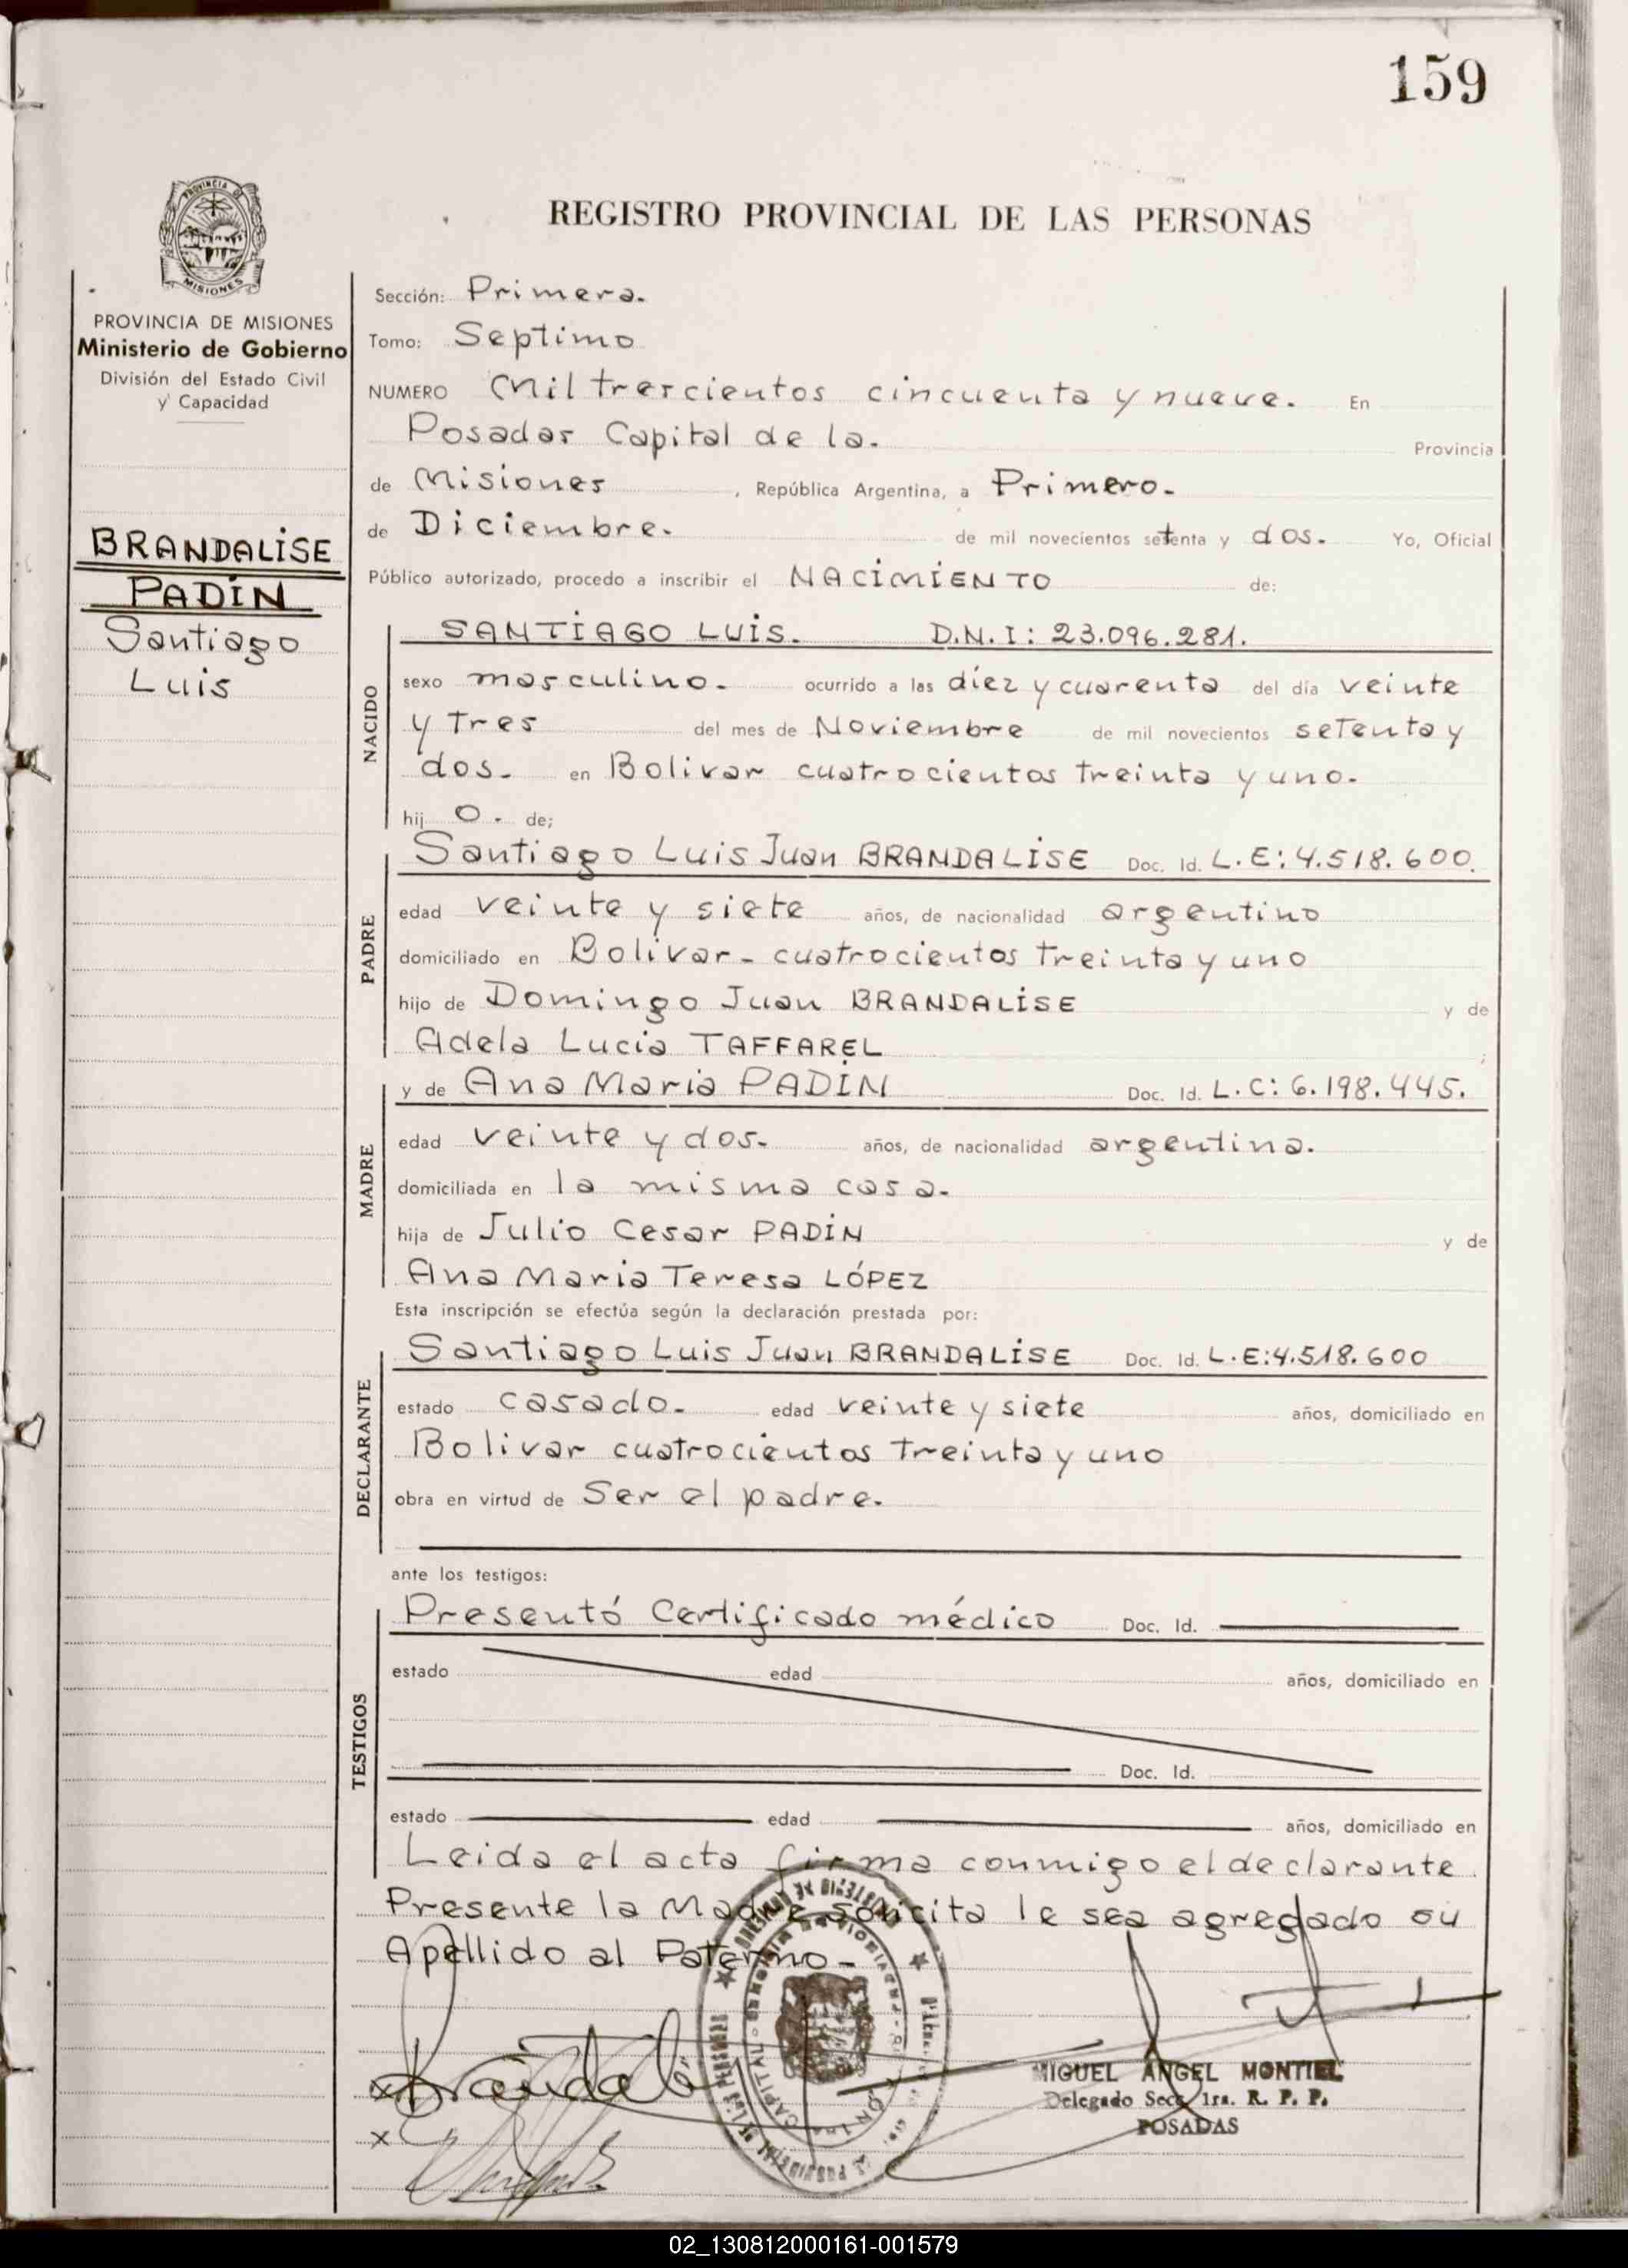 159
PROVINCIA DE MISIONES
REGISTRO PROVINCIAL DE LAS PERSONAS
PROVINCIA DE MISIONES
Ministerio de Gobierno
División del Estado Civil
y Capacidad
BRANDALISE
PADIN
Santiago
Luis
Sección: Primera.
Tomo: Septimo
NUMERO Mil trescientos cincuenta y nueve. En
Posadas Capital de la. Provincia
de Misiones, República Argentina, a Primero.
de Diciembre. de mil novecientos setenta y dos. Yo, Oficial
Público autorizado, procedo a inscribir el NACIMIENTO de:
NACIDO
SANTIAGO LUIS. D.N.I: 23.096.281.
sexo masculino. ocurrido a las diez y cuarenta del día veinte
y tres del mes de Noviembre de mil novecientos setenta y
dos. en Bolivar cuatrocientos treinta y uno.
hij o. de;
PADRE
Santiago Luis Juan BRANDALISE Doc. Id. L.E: 4.518.600.
edad veinte y siete años, de nacionalidad argentino
domiciliado en Bolivar - cuatrocientos treinta y uno
hijo de Domingo Juan BRANDALISE y de
Adela Lucia TAFFAREL ;
MADRE
y de Ana Maria PADIN Doc. Id. L.C: 6.198.445.
edad veinte y dos. años, de nacionalidad argentina.
domiciliada en la misma casa.
hija de Julio Cesar PADIN y de
Ana Maria Teresa LÓPEZ
Esta inscripción se efectúa según la declaración prestada por:
DECLARANTE
Santiago Luis Juan BRANDALISE Doc. Id. L.E:4.518.600
estado casado. edad veinte y siete años, domiciliado en
Bolivar cuatrocientos treinta y uno
obra en virtud de Ser el padre.
ante los testigos:
TESTIGOS
Presentó Certificado médico Doc. Id.
estado edad años, domiciliado en
Doc. Id.
estado edad años, domiciliado en
Leida el acta firma conmigo el declarante
Presente la Madre solicita le sea agregado su
Apellido al Paterno -
MIGUEL ANGEL MONTIEL
Delegado Secc. 1ra. R. P. P.
POSADAS
02_130812000161-001579